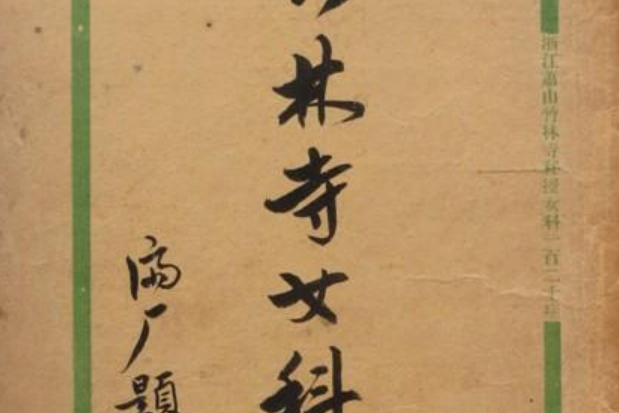 浙江蕭山竹林寺秘授女科一百二十
林寺女科
厂題